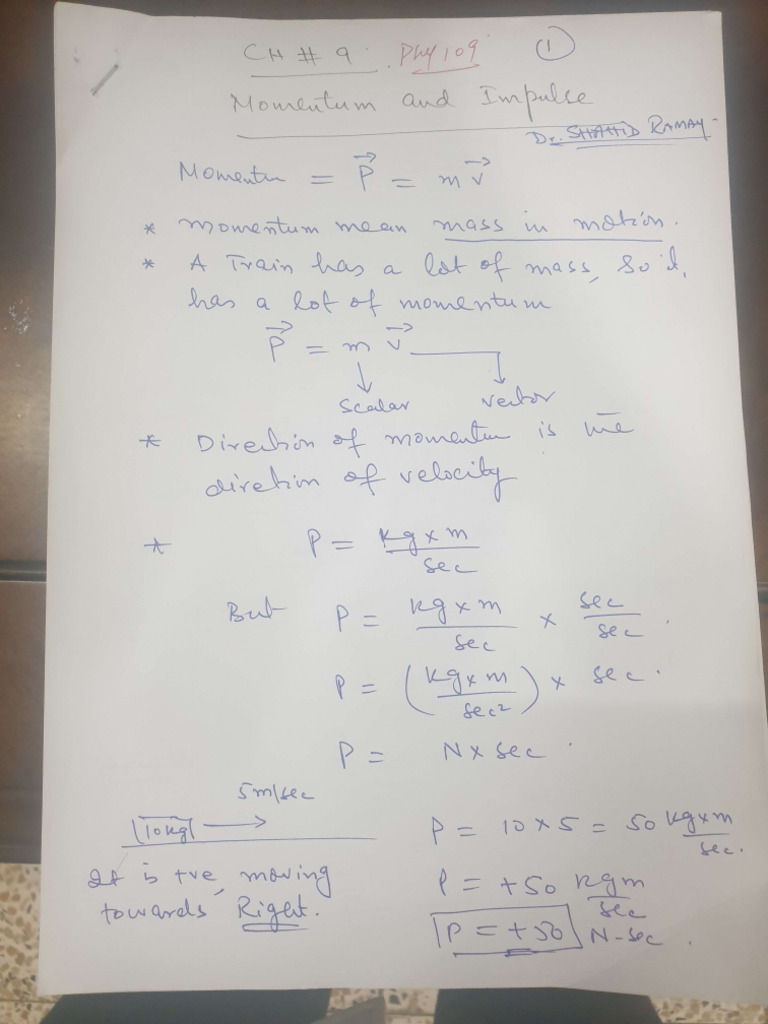 CH # 9. Phy 109 ①
Momentum and Impulse
Dr. SHAHID RAMAY
Momentu = P⃗ = m v⃗
* Momentum mean mass in motion.
* A Train has a lot of mass, So it,
has a lot of momentum
P⃗ = m v⃗
Scalar vector
* Direction of momentum is the
diretion of velocity
* P = kg x m / sec
But P = kg x m / sec x sec / sec .
P = ( kg x m / sec² ) x sec .
P = N x sec .
5m/sec
10kg
P = 10 x 5 = 50 kg x m / sec.
It is +ve, moving
towards Right.
P = +50 kg m / sec
P = +50 N-sec .